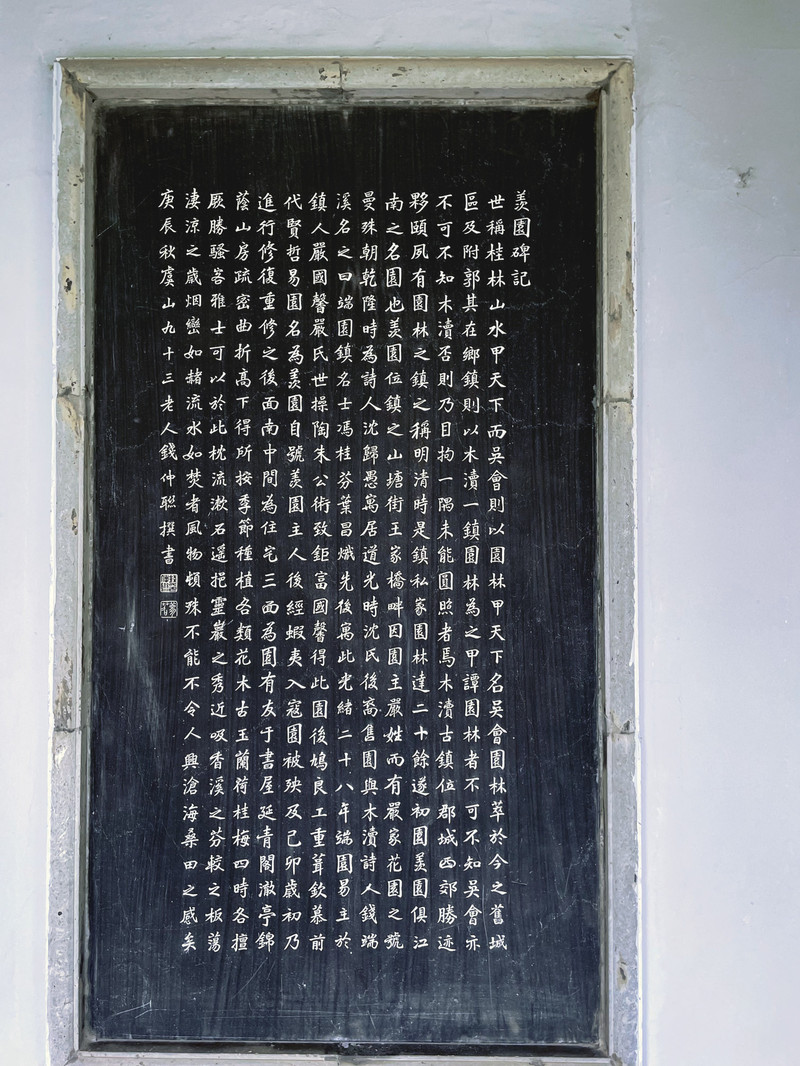 羨園碑記
世稱桂林山水甲天下而吳會則以園林甲天下名吳會園林萃於今之舊城
區及附郭其在鄉鎮則以木瀆一鎮園林為之甲譚園林者不可不知吳會亦
不可不知木瀆否則乃目拘一隅未能圓照者焉木瀆古鎮位郡城西郊勝迹
夥頤夙有園林之鎮之稱明清時是鎮私家園林達二十餘遂初園羨園俱江
南之名園也羨園位鎮之山塘街王家橋畔因園主嚴姓而有嚴家花園之號
曼殊朝乾隆時為詩人沈歸愚寓居道光時沈氏後裔售園與木瀆詩人錢端
溪名之曰端園鎮名士馮桂芬葉昌熾先後寓此光緒二十八年端園易主於
鎮人嚴國馨嚴氏世操陶朱公術致鉅富國馨得此園後鳩良工重葺欽慕前
代賢哲易園名為羨園自號羨園主人後經蝦夷入寇園被殃及己卯歲初乃
進行修復重修之後面南中間為住宅三面為園有友于書屋延青閣澈亭錦
蔭山房疏密曲折高下得所按季節種植各類花木古玉蘭荷桂梅四時各擅
厥勝騷客雅士可以於此枕流漱石遥挹靈巖之秀近吸香溪之芬較之板蕩
淒涼之歲烟巒如赭流水如焚者風物頓殊不能不令人興滄海桑田之感矣
庚辰秋虞山九十三老人錢仲聯撰書